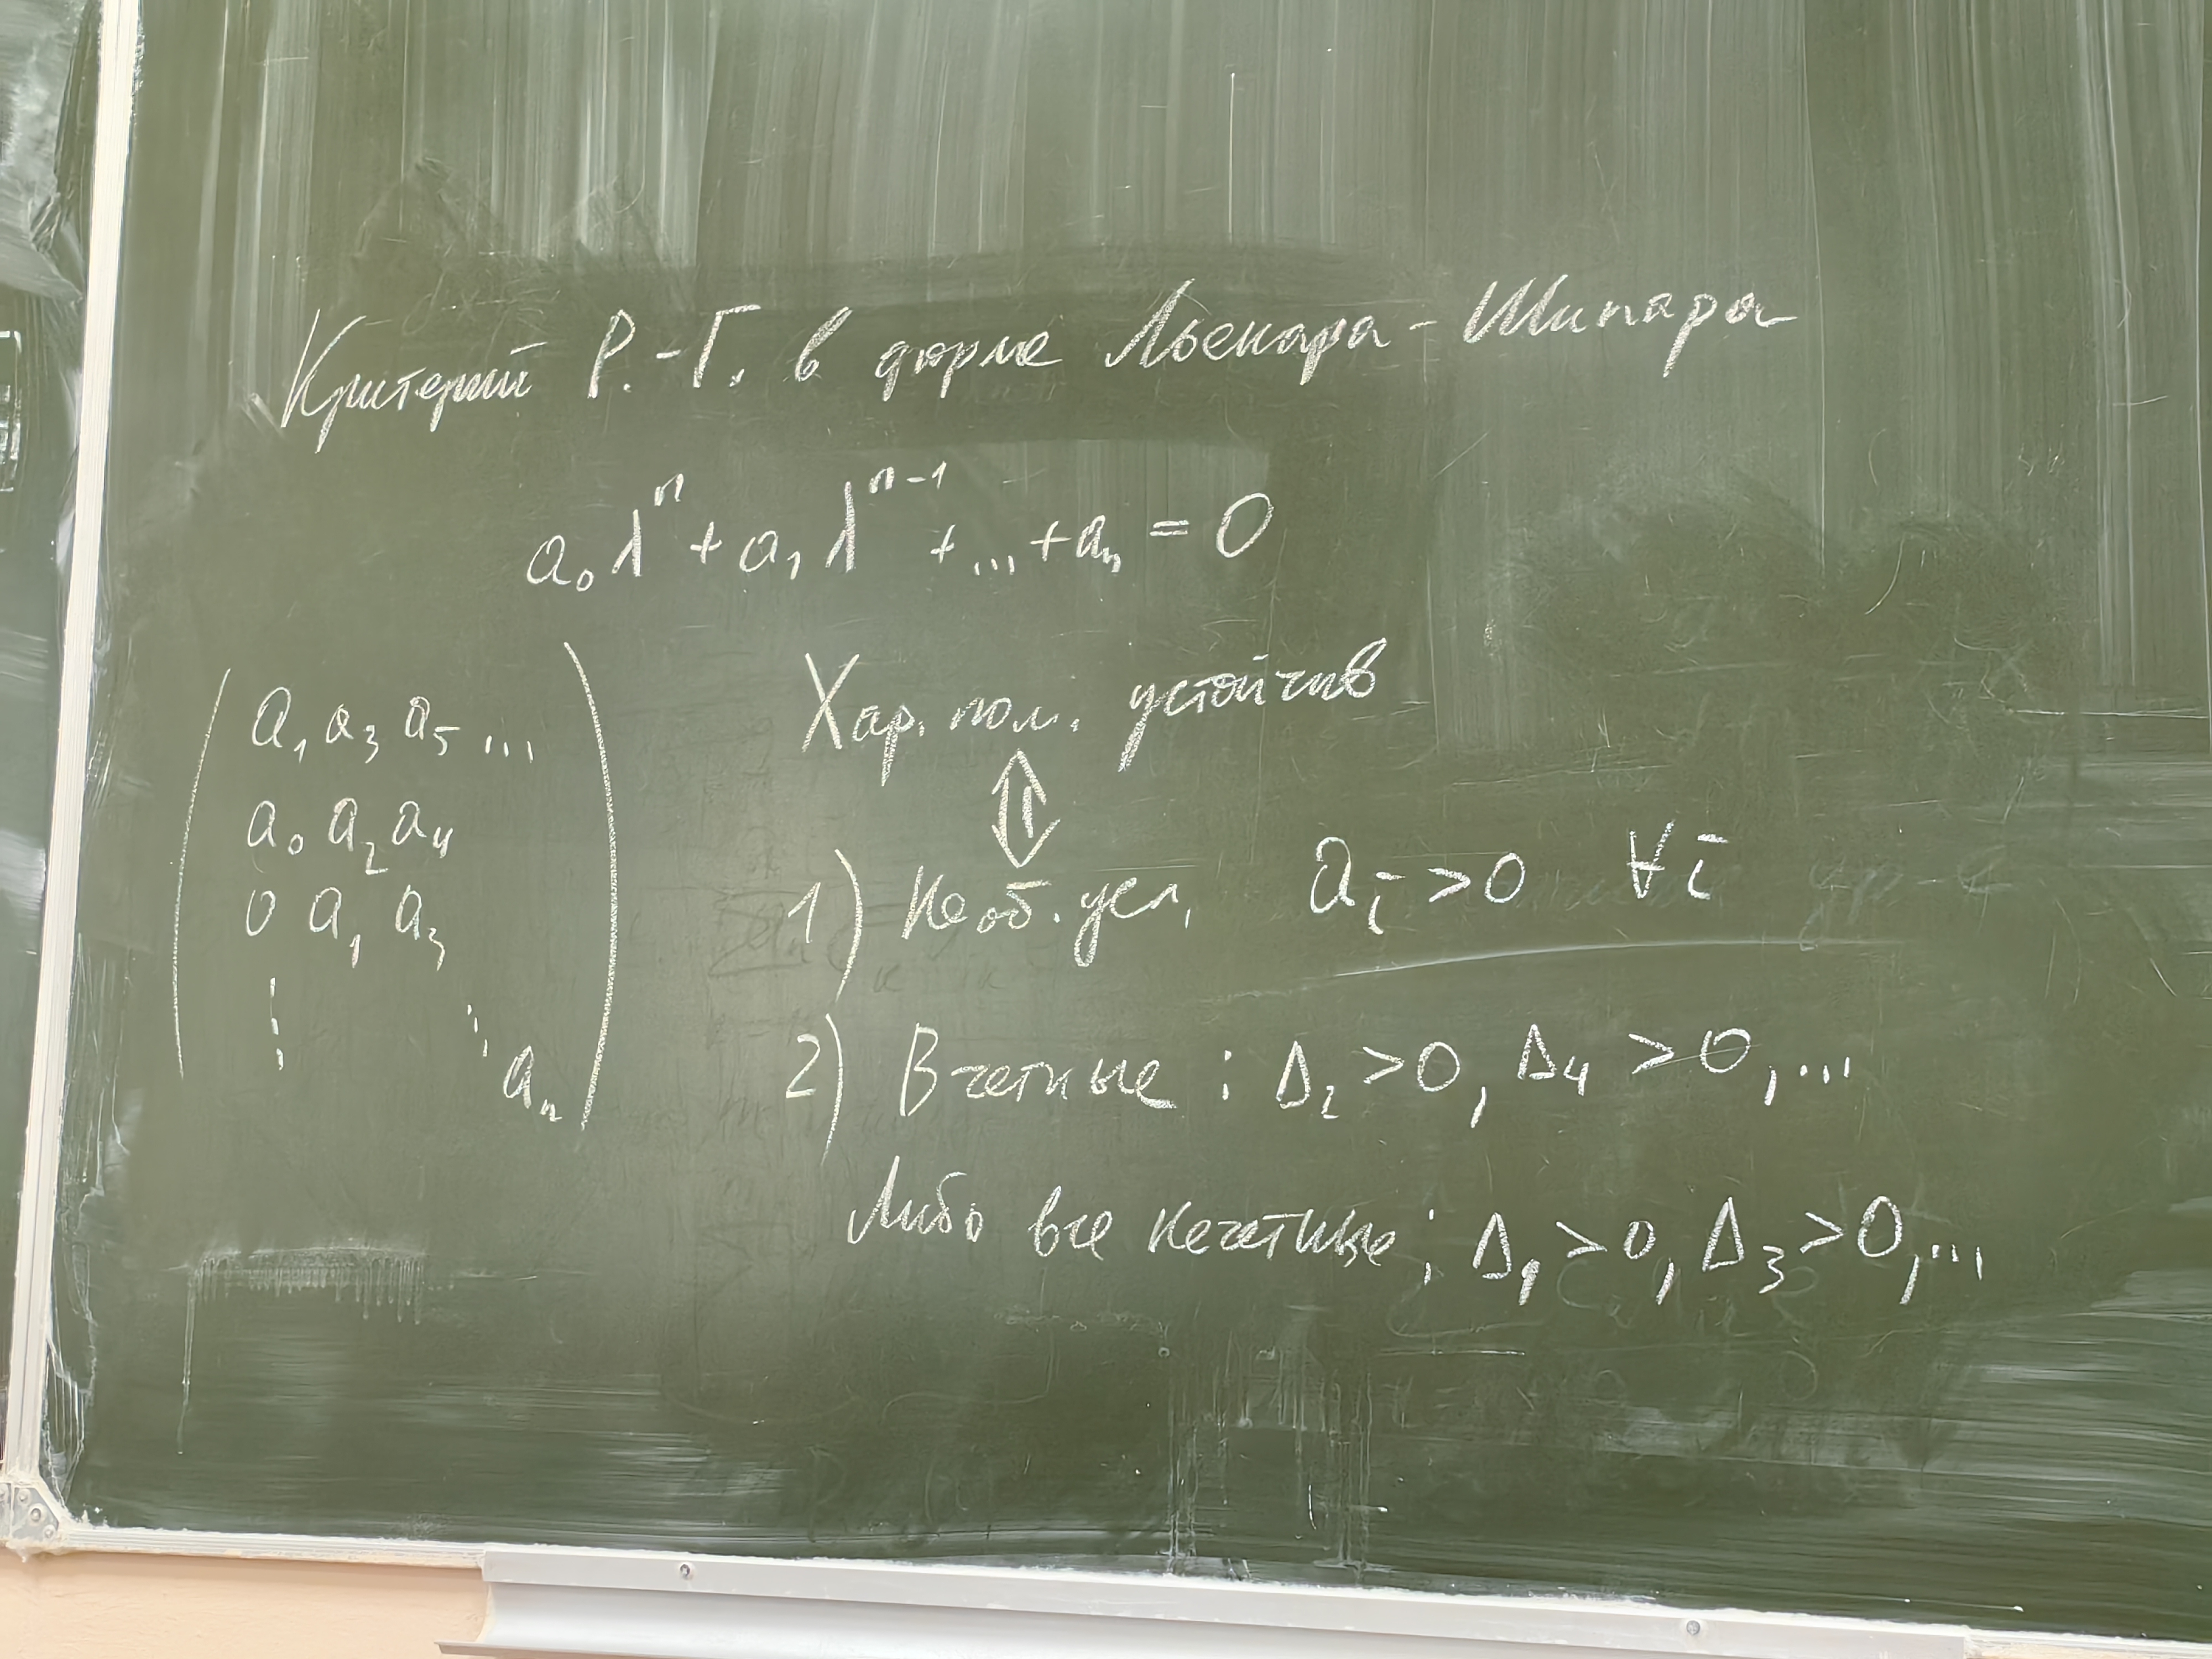 Критерий Р.-Г. в форме Льенара - Шипара
a₀λⁿ + a₁λⁿ⁻¹ + ... + aₙ = 0
a₁ a₃ a₅ ...
a₀ a₂ a₄
0 a₁ a₃
⋮ ⋱ aₙ
Хар. пол. устойчив
⇕
1) Необ. усл. aᵢ > 0 ∀i
2) В четные : Δ₂ > 0, Δ₄ > 0, ...
Либо все нечетные : Δ₁ > 0, Δ₃ > 0, ...